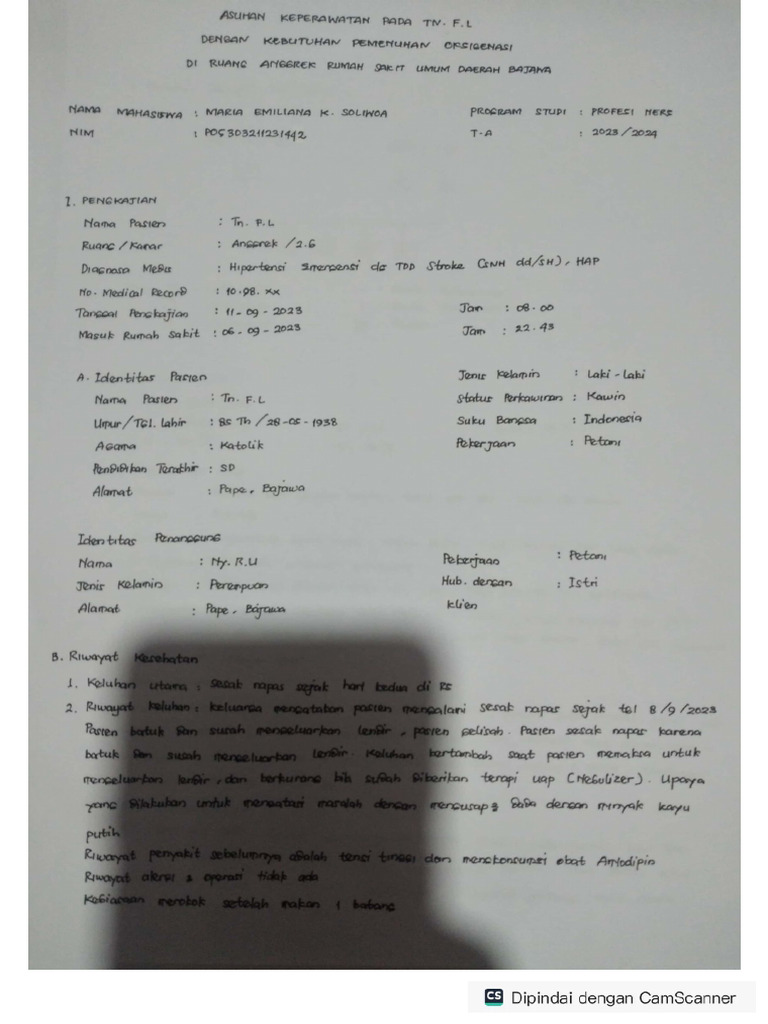 ASUHAN KEPERAWATAN PADA TN. F.L
DENGAN KEBUTUHAN PEMENUHAN OKSIGENASI
DI RUANG ANGGREK RUMAH SAKIT UMUM DAERAH BAJAWA
NAMA MAHASISWA : MARIA EMILIANA K. SOLIWOA PROGRAM STUDI : PROFESI NERS
NIM : PO5303211231442 T-A : 2023/2024
I. PENGKAJIAN
Nama Pasien : Tn. F.L
Ruang/Kamar : Anggrek /2.6
Diagnosa Medis : Hipertensi Emergensi dg TDD Stroke (SNH dd/SH), HAP
No. Medical Record : 10.98.xx
Tanggal Pengkajian : 11-09-2023 Jam : 08.00
Masuk Rumah Sakit : 06-09-2023 Jam : 22.43
A. Identitas Pasien Jenis Kelamin : Laki-laki
Nama Pasien : Tn. F.L Status Perkawinan : Kawin
Umur/Tgl. lahir : 85 Th /28-05-1938 Suku Bangsa : Indonesia
Agama : Katolik Pekerjaan : Petani
Pendidikan Terakhir : SD
Alamat : Pape, Bajawa
Identitas Penanggung
Nama : Ny. R.U Pekerjaan : Petani
Jenis Kelamin : Perempuan Hub. dengan : Istri
Alamat : Pape, Bajawa Klien
B. Riwayat Kesehatan
1. Keluhan utama : sesak napas sejak hari kedua di RS
2. Riwayat keluhan : keluarga mengatakan pasien mengalami sesak napas sejak tgl 8/9/2023
Pasien batuk dan susah mengeluarkan lendir, pasien gelisah. Pasien sesak napas karena
batuk dan susah mengeluarkan lendir. Keluhan bertambah saat pasien memaksa untuk
mengeluarkan lendir, dan berkurang bila sudah diberikan terapi uap (Nebulizer). Upaya
yang dilakukan untuk mengatasi masalah dengan mengusap2 dada dengan minyak kayu
putih
Riwayat penyakit sebelumnya adalah tensi tinggi dan mengkonsumsi obat Amlodipin
Riwayat alergi & operasi tidak ada
Kebiasaan merokok setelah makan 1 batang
CS Dipindai dengan CamScanner